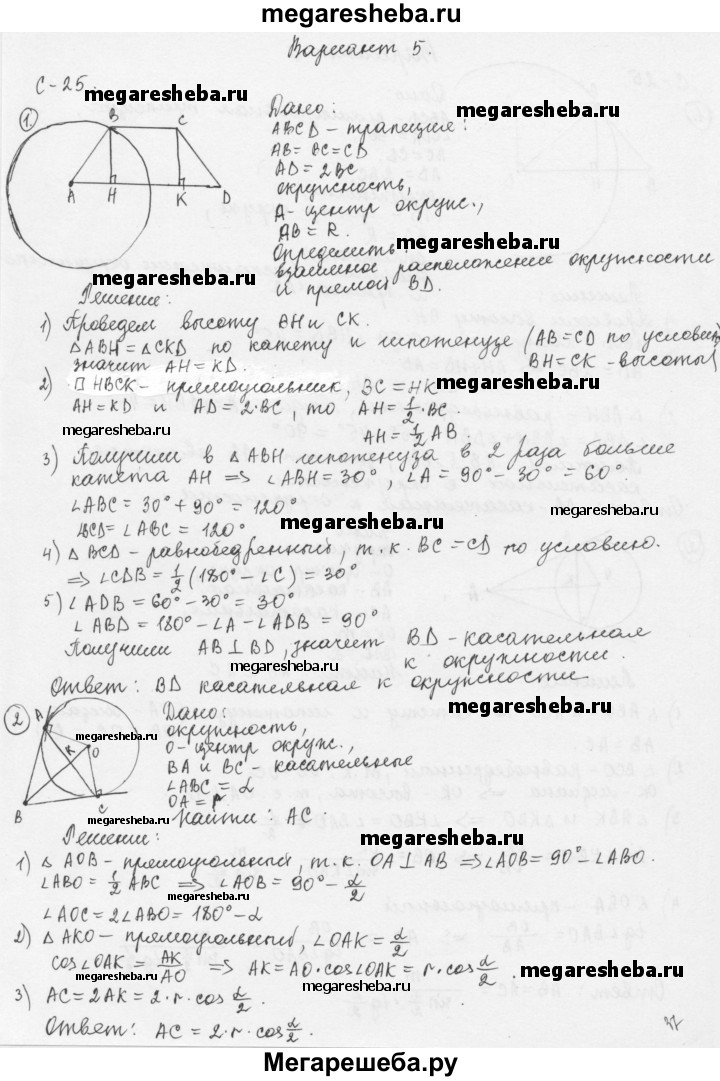 megaresheba.ru
Вариант 5.
С-25.
megaresheba.ru
megaresheba.ru
1.
B
C
A
H
K
D
Дано:
ABCD – трапеция:
AB = BC = CD
AD = 2BC
окружность,
A – центр окруж.,
AB = R.
Определить:
megaresheba.ru
взаимное расположение окружности
и прямой BD.
megaresheba.ru
Решение:
1) Проведем высоту BH и CK.
△ABH = △CKD по катету и гипотенузе (AB = CD по условию
значит AH = KD.
BH = CK – высоты)
2) □ HBCK – прямоугольник, BC = HK
AH = KD и AD = 2·BC, то AH = ½·BC.
megaresheba.ru
megaresheba.ru
AH = ½ AB.
3) Получили в △ABH гипотенуза в 2 раза больше
катета AH ⇒ ∠ABH = 30°, ∠A = 90° – 30° = 60°.
∠ABC = 30° + 90° = 120°
∠BCD = ∠ABC = 120°
megaresheba.ru
megaresheba.ru
4) △ BCD – равнобедренный, т.к. BC = CD по условию.
⇒ ∠CDB = ½ (180° – ∠C) = 30°
5) ∠ADB = 60° – 30° = 30°
∠ABD = 180° – ∠A – ∠ADB = 90°
Получили AB ⊥ BD, значит BD – касательная
к окружности.
megaresheba.ru
megaresheba.ru
Ответ: BD касательная к окружности
2
A
K
O
B
C
megaresheba.ru
megaresheba.ru
Дано:
окружность,
O – центр окруж.,
BA и BC – касательные
∠ABC = α
OA = r.
megaresheba.ru
Найти: AC
Решение:
megaresheba.ru
1) △ AOB – прямоугольный, т.к. OA ⊥ AB ⇒ ∠AOB = 90° – ∠ABO.
∠ABO = ½ ABC ⇒ ∠AOB = 90° – α/2
megaresheba.ru
megaresheba.ru
∠AOC = 2∠ABO = 180° – α
2) △ AKO – прямоугольный, ∠OAK = α/2
megaresheba.ru
cos∠OAK = AK/AO ⇒ AK = AO · cos∠OAK = r · cos α/2.
megaresheba.ru
megaresheba.ru
3) AC = 2AK = 2 · r · cos α/2.
megaresheba.ru
Ответ: AC = 2 · r · cos α/2.
37
Мегарешеба.ру